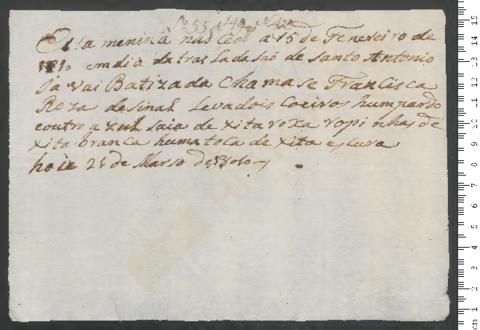 Esta menina nasceo a 15 de Fevereiro de
1810 em dia da trasladasaõ de Santo Antonio
Ja vai Batizada Chamase Francisca
Roza da sinal Leva dois Coeiros hum pardo
e outro azul saia de xita roxa ropinhas de
xita branca huma toca de xita escura
hoie 25 de Marso de 1810